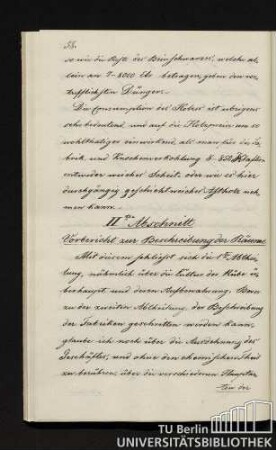 58.
so wie die Reste des Beinschwarzes, welche al-
lein an 7-8000 betragen, geben den vor-
trefflichsten Dünger.
Die Consumption des Holzes ist übrigens
sehr bedeutend und auf die Holzpreise um so
wohlthätiger einwirkend als man für die Fa-
brik und Knochenverkohlung Klafter
entweder weicher Scheite oder wie es hier
durchgängig geschieht weiches Astholz neh-
men kann.
IIter Abschnitt
Vorbericht zur Beschreibung der Räume
Mit diesem schließt sich die 1te Abthei-
lung, nähmlich über die Cultur der Rübe ü-
berhaupt und deren Aufbewahrung. Bevor
zu der zweiten Abtheilung, der Beschreibung
der Fabriken geschritten werden kann,
glaube ich noch über die Ausdehnung des
Geschäftes, und ohne den chemischen Theil
zu berühren, über die verschiedenen
TU Berlin
UNIVERSITÄTSBIBLIOTHEK